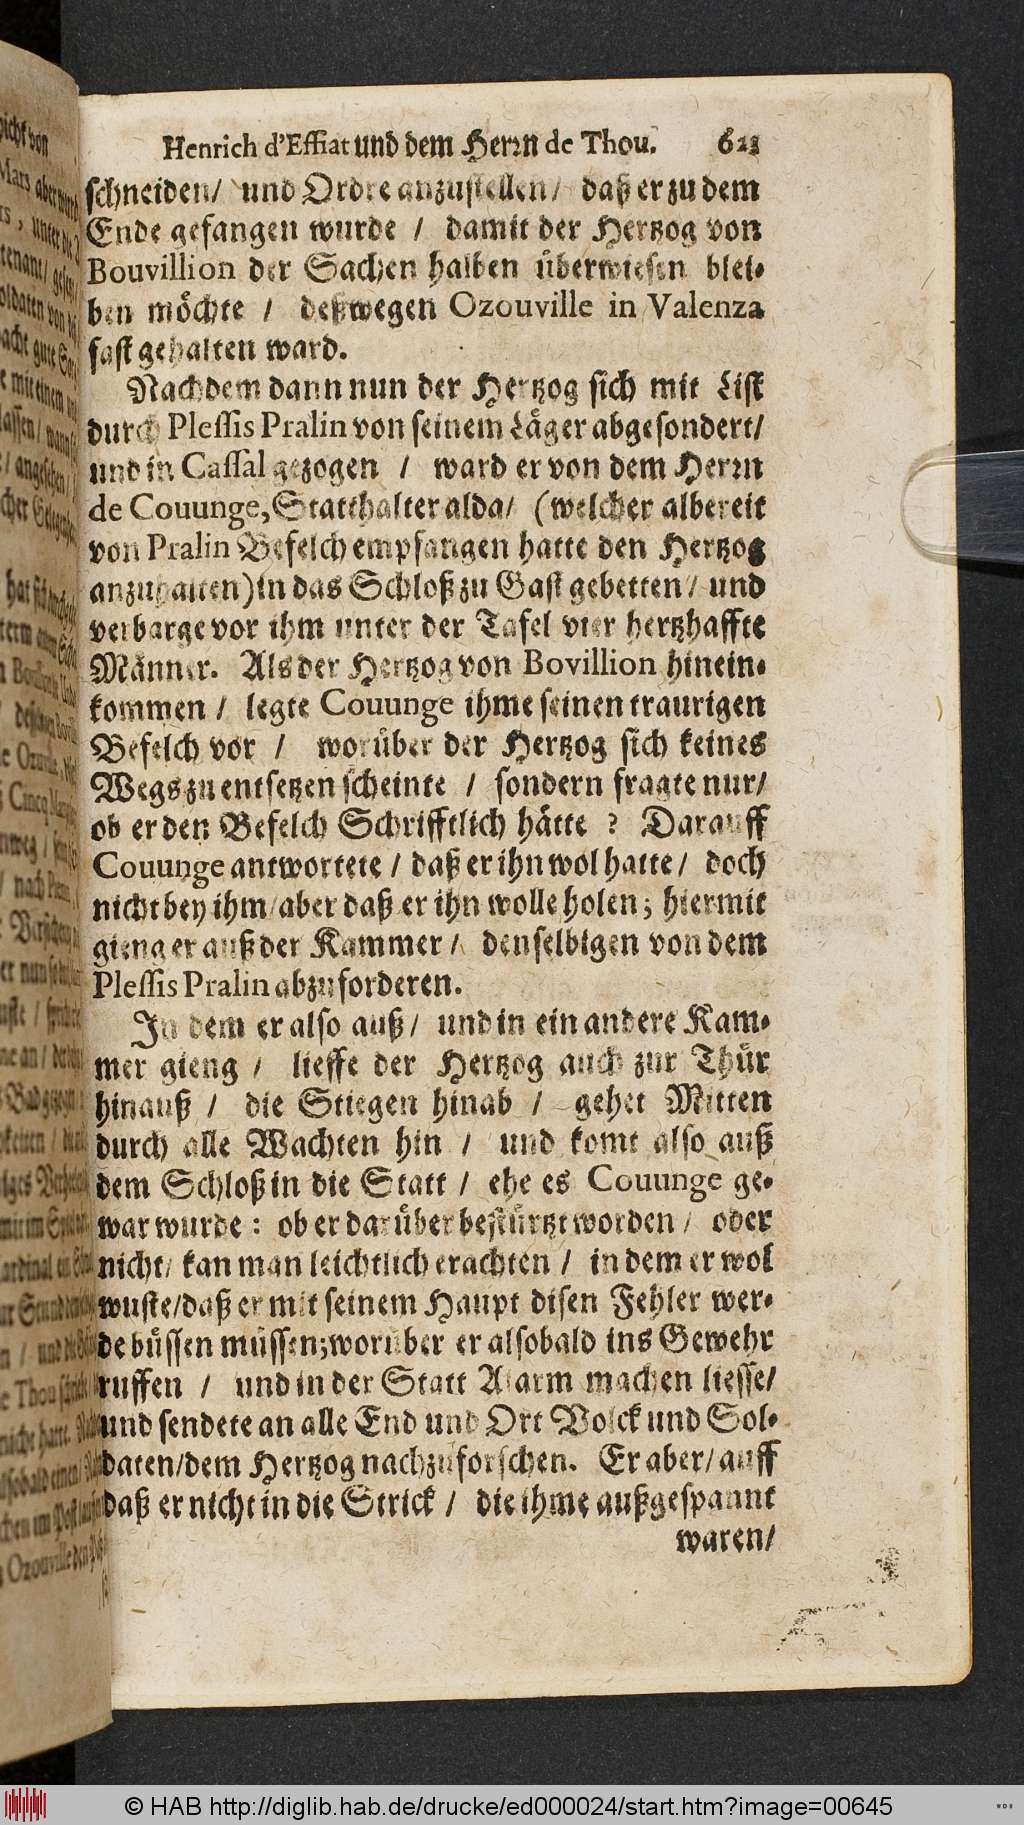 Henrich d'Effiat und dem Herrn de Thou. 623
schneiden/ und Ordre anzustellen/ daß er zu dem
Ende gefangen wurde / damit der Hertzog von
Bouvillion der Sachen halben überwiesen blei-
ben möchte / deßwegen Ozouville in Valenza
fast gehalten ward.
Nachdem dann nun der Hertzog sich mit List
durch Plessis Pralin von seinem Läger abgesondert/
und in Cassal gezogen / ward er von dem Herrn
de Couunge, Statthalter alda/ (welcher albereit
von Pralin Befelch empfangen hatte den Hertzog
anzuhalten) in das Schloß zu Gast gebetten/ und
verbarge vor ihm unter der Tafel vier hertzhaffte
Männer. Als der Hertzog von Bovillion hinein-
kommen / legte Couunge ihme seinen traurigen
Befelch vor / worüber der Hertzog sich keines
Wegs zu entsetzen scheinte / sondern fragte nur/
ob er den Befelch Schrifftlich hätte ? Darauff
Couunge antwortete / daß er ihn wol hatte / doch
nicht bey ihm/ aber daß er ihn wolle holen; hiermit
gieng er auß der Kammer / denselbigen von dem
Plessis Pralin abzuforderen.
In dem er also auß/ und in ein andere Kam-
mer gieng / lieffe der Hertzog auch zur Thür
hinauß / die Stiegen hinab / gehet Mitten
durch alle Wachten hin / und komt also auß
dem Schloß in die Statt / ehe es Couunge ge-
war wurde : ob er darüber bestürtzt worden / oder
nicht/ kan man leichtlich erachten / in dem er wol
wuste/ daß er mit seinem Haupt disen Fehler wer-
de büssen müssen; worüber er alsobald ins Gewehr
ruffen / und in der Statt Alarm machen liesse/
und sendete an alle End und Ort Volck und Sol-
daten/ dem Hertzog nachzuforschen. Er aber/ auff
daß er nicht in die Strick / die ihme außgespannt
waren/
© HAB http://diglib.hab.de/drucke/ed000024/start.htm?image=00645